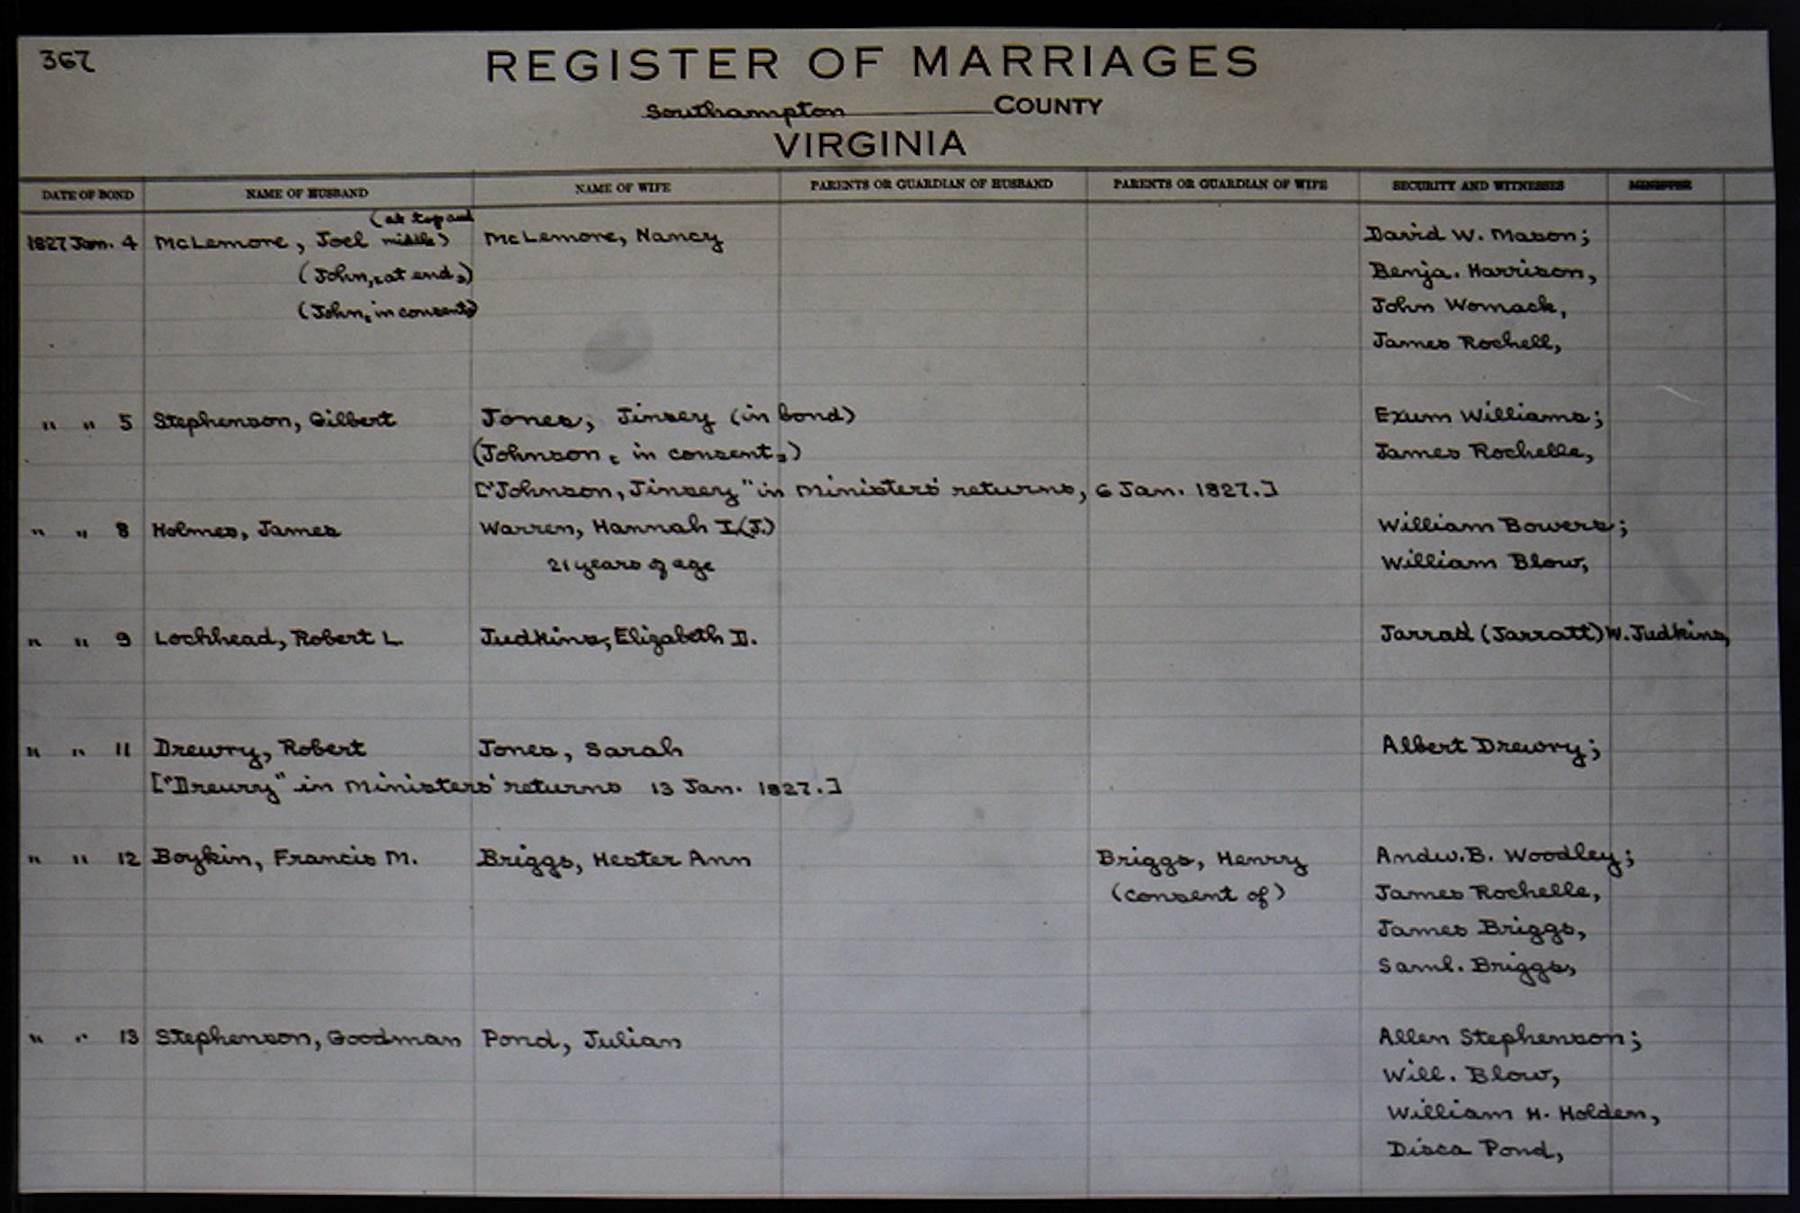 367
REGISTER OF MARRIAGES
Southampton COUNTY
VIRGINIA
DATE OF BOND NAME OF HUSBAND NAME OF WIFE PARENTS OR GUARDIAN OF HUSBAND PARENTS OR GUARDIAN OF WIFE SECURITY AND WITNESSES MINISTER
(at top and
1827 Jan. 4 McLemore, Joel middle) McLemore, Nancy David W. Mason;
(John, at end,) Benja. Harrison,
(John, in consent,) John Womack,
James Rochell,
" " 5 Stephenson, Gilbert Jones, Jinsey (in bond) Exum Williams;
(Johnson, in consent,) James Rochelle,
["Johnson, Jinsey" in Ministers' returns, 6 Jan. 1827.]
" " 8 Holmes, James Warren, Hannah I.(J.) William Bowers;
21 years of age William Blow,
" " 9 Lochhead, Robert L. Judkins, Elizabeth D. Jarrad (Jarratt) W. Judkins,
" " 11 Drewry, Robert Jones, Sarah Albert Drewry;
["Dreury" in Ministers' returns 13 Jan. 1827.]
" " 12 Boykin, Francis M. Briggs, Hester Ann Briggs, Henry Andw. B. Woodley;
(consent of) James Rochelle,
James Briggs,
Saml. Briggs,
" " 13 Stephenson, Goodman Pond, Julian Allen Stephenson;
Will. Blow,
William H. Holden,
Disca Pond,